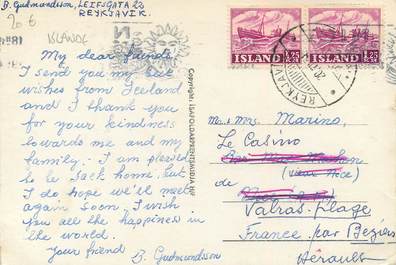 B. Gudmundsson, LEIFSGATA 22
REYKJAVIK.
20 6
ISLAND
My dear friends
I send you my best
wishes from Iceland
and I thank you
for your kindness
towards me and my
family. I am pleased
to be back home, but
I do hope we'll meet
again soon. I wish
you all the happiness in
the world.
Your friend
B. Gudmundsson
Copyright: ÍSAFOLDARPRENTSMIÐJA HF
1.25 1.25
ISLAND ISLAND
REYKJAVIK
Mr & Mrs. Marino,
Le Casino
(near Nice)
de
Valras-Plage
France par Beziers
Hérault